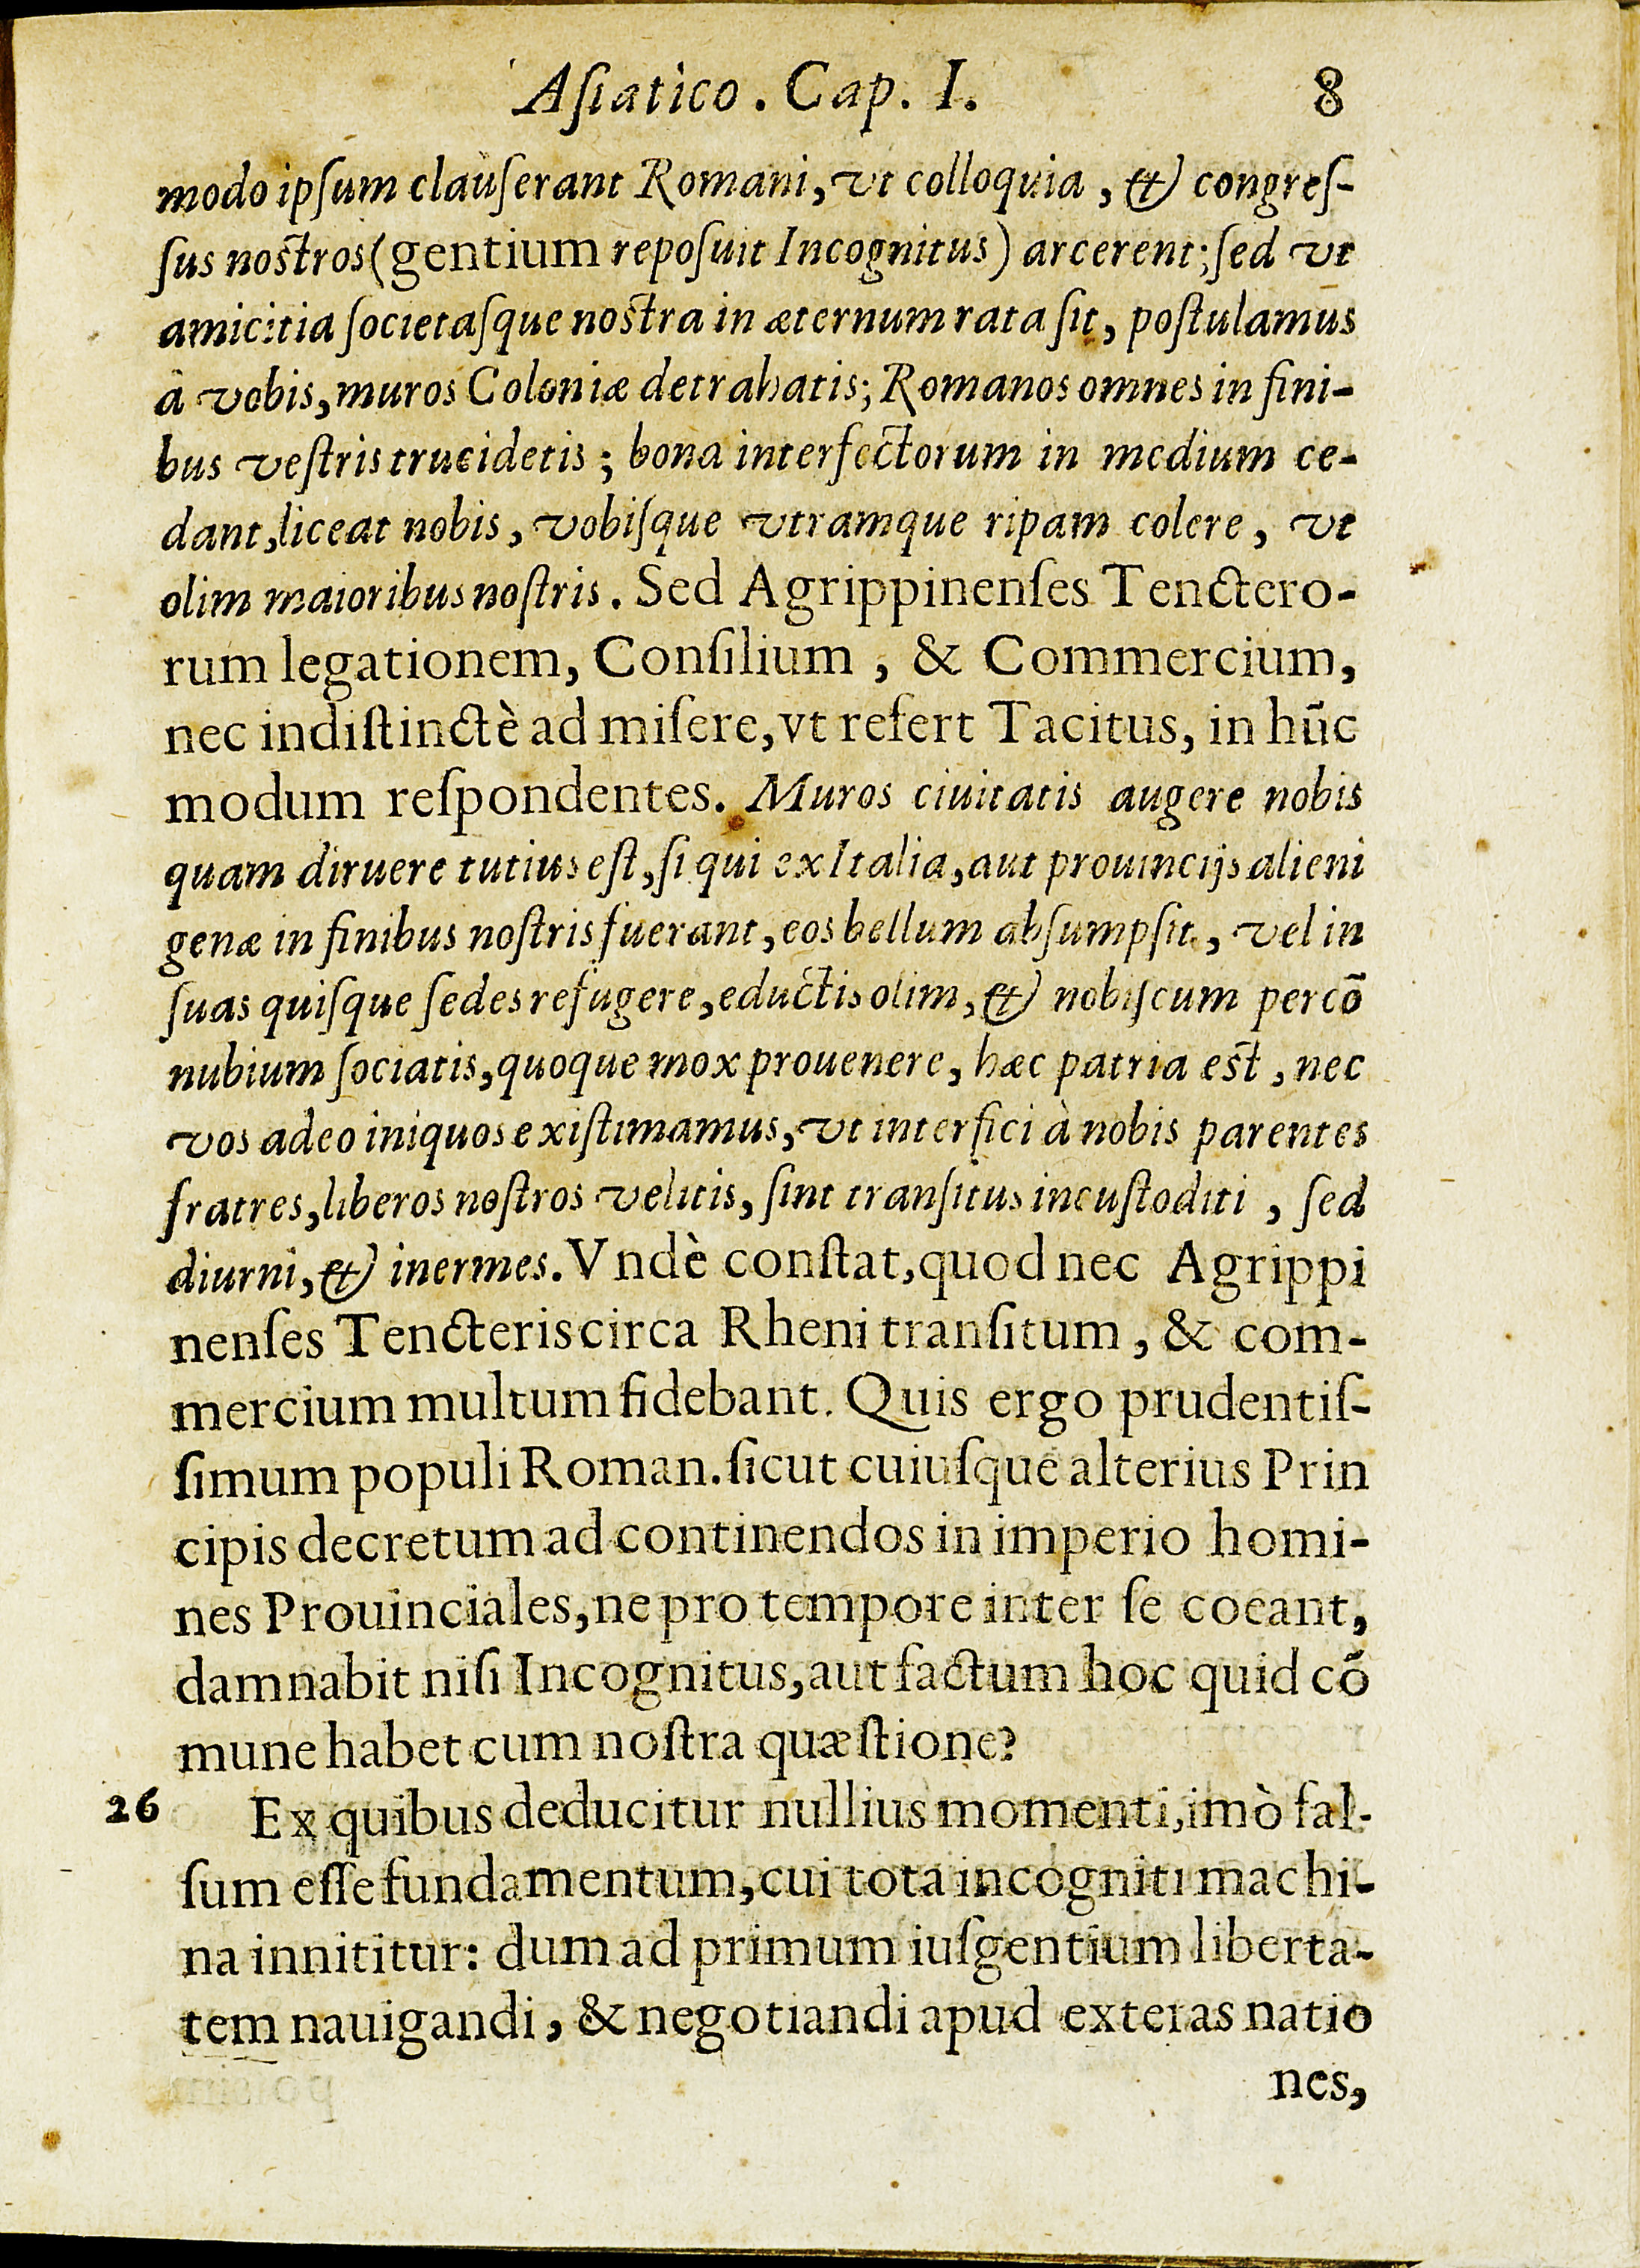 Aſiatico. Cap. I. 8
modo ipſum clauſerant Romani, vt colloquia, & congreſ-
ſus noſtros (gentium repoſuit Incognitus) arcerent; ſed vt
amicitia ſocietaſque noſtra in æternum rata ſit, poſtulamus
à vobis, muros Coloniæ detrahatis; Romanos omnes in fini-
bus veſtris trucidetis; bona interfectorum in medium ce-
dant, liceat nobis, vobiſque vtramque ripam colere, vt
olim maioribus noſtris. Sed Agrippinenſes Tenctero-
rum legationem, Conſilium, & Commercium,
nec indiſtinctè ad miſere, vt refert Tacitus, in hūc
modum reſpondentes. Muros ciuitatis augere nobis
quam diruere tutius eſt, ſi qui ex Italia, aut prouincijs alieni
genæ in finibus noſtris fuerant, eos bellum abſumpſit, vel in
ſuas quiſque ſedes refugere, eductis olim, & nobiſcum per cō
nubium ſociatis, quoque mox prouenere, hæc patria eſt, nec
vos adeo iniquos exiſtimamus, vt interfici à nobis parentes
fratres, liberos noſtros velitis, ſint tranſitus incuſtoditi, ſed
diurni, & inermes. Vndè conſtat, quod nec Agrippi
nenſes Tencteris circa Rheni tranſitum, & com-
mercium multum fidebant. Quis ergo prudentiſ-
ſimum populi Roman. ſicut cuiuſque alterius Prin
cipis decretum ad continendos in imperio homi-
nes Prouinciales, ne pro tempore inter ſe coeant,
damnabit niſi Incognitus, aut factum hoc quid cō
mune habet cum noſtra quæſtione?
26 Ex quibus deducitur nullius momenti, imò fal-
ſum eſſe fundamentum, cui tota incogniti machi-
na innititur: dum ad primum iuſgentium liberta-
tem nauigandi, & negotiandi apud exteras natio
nes,